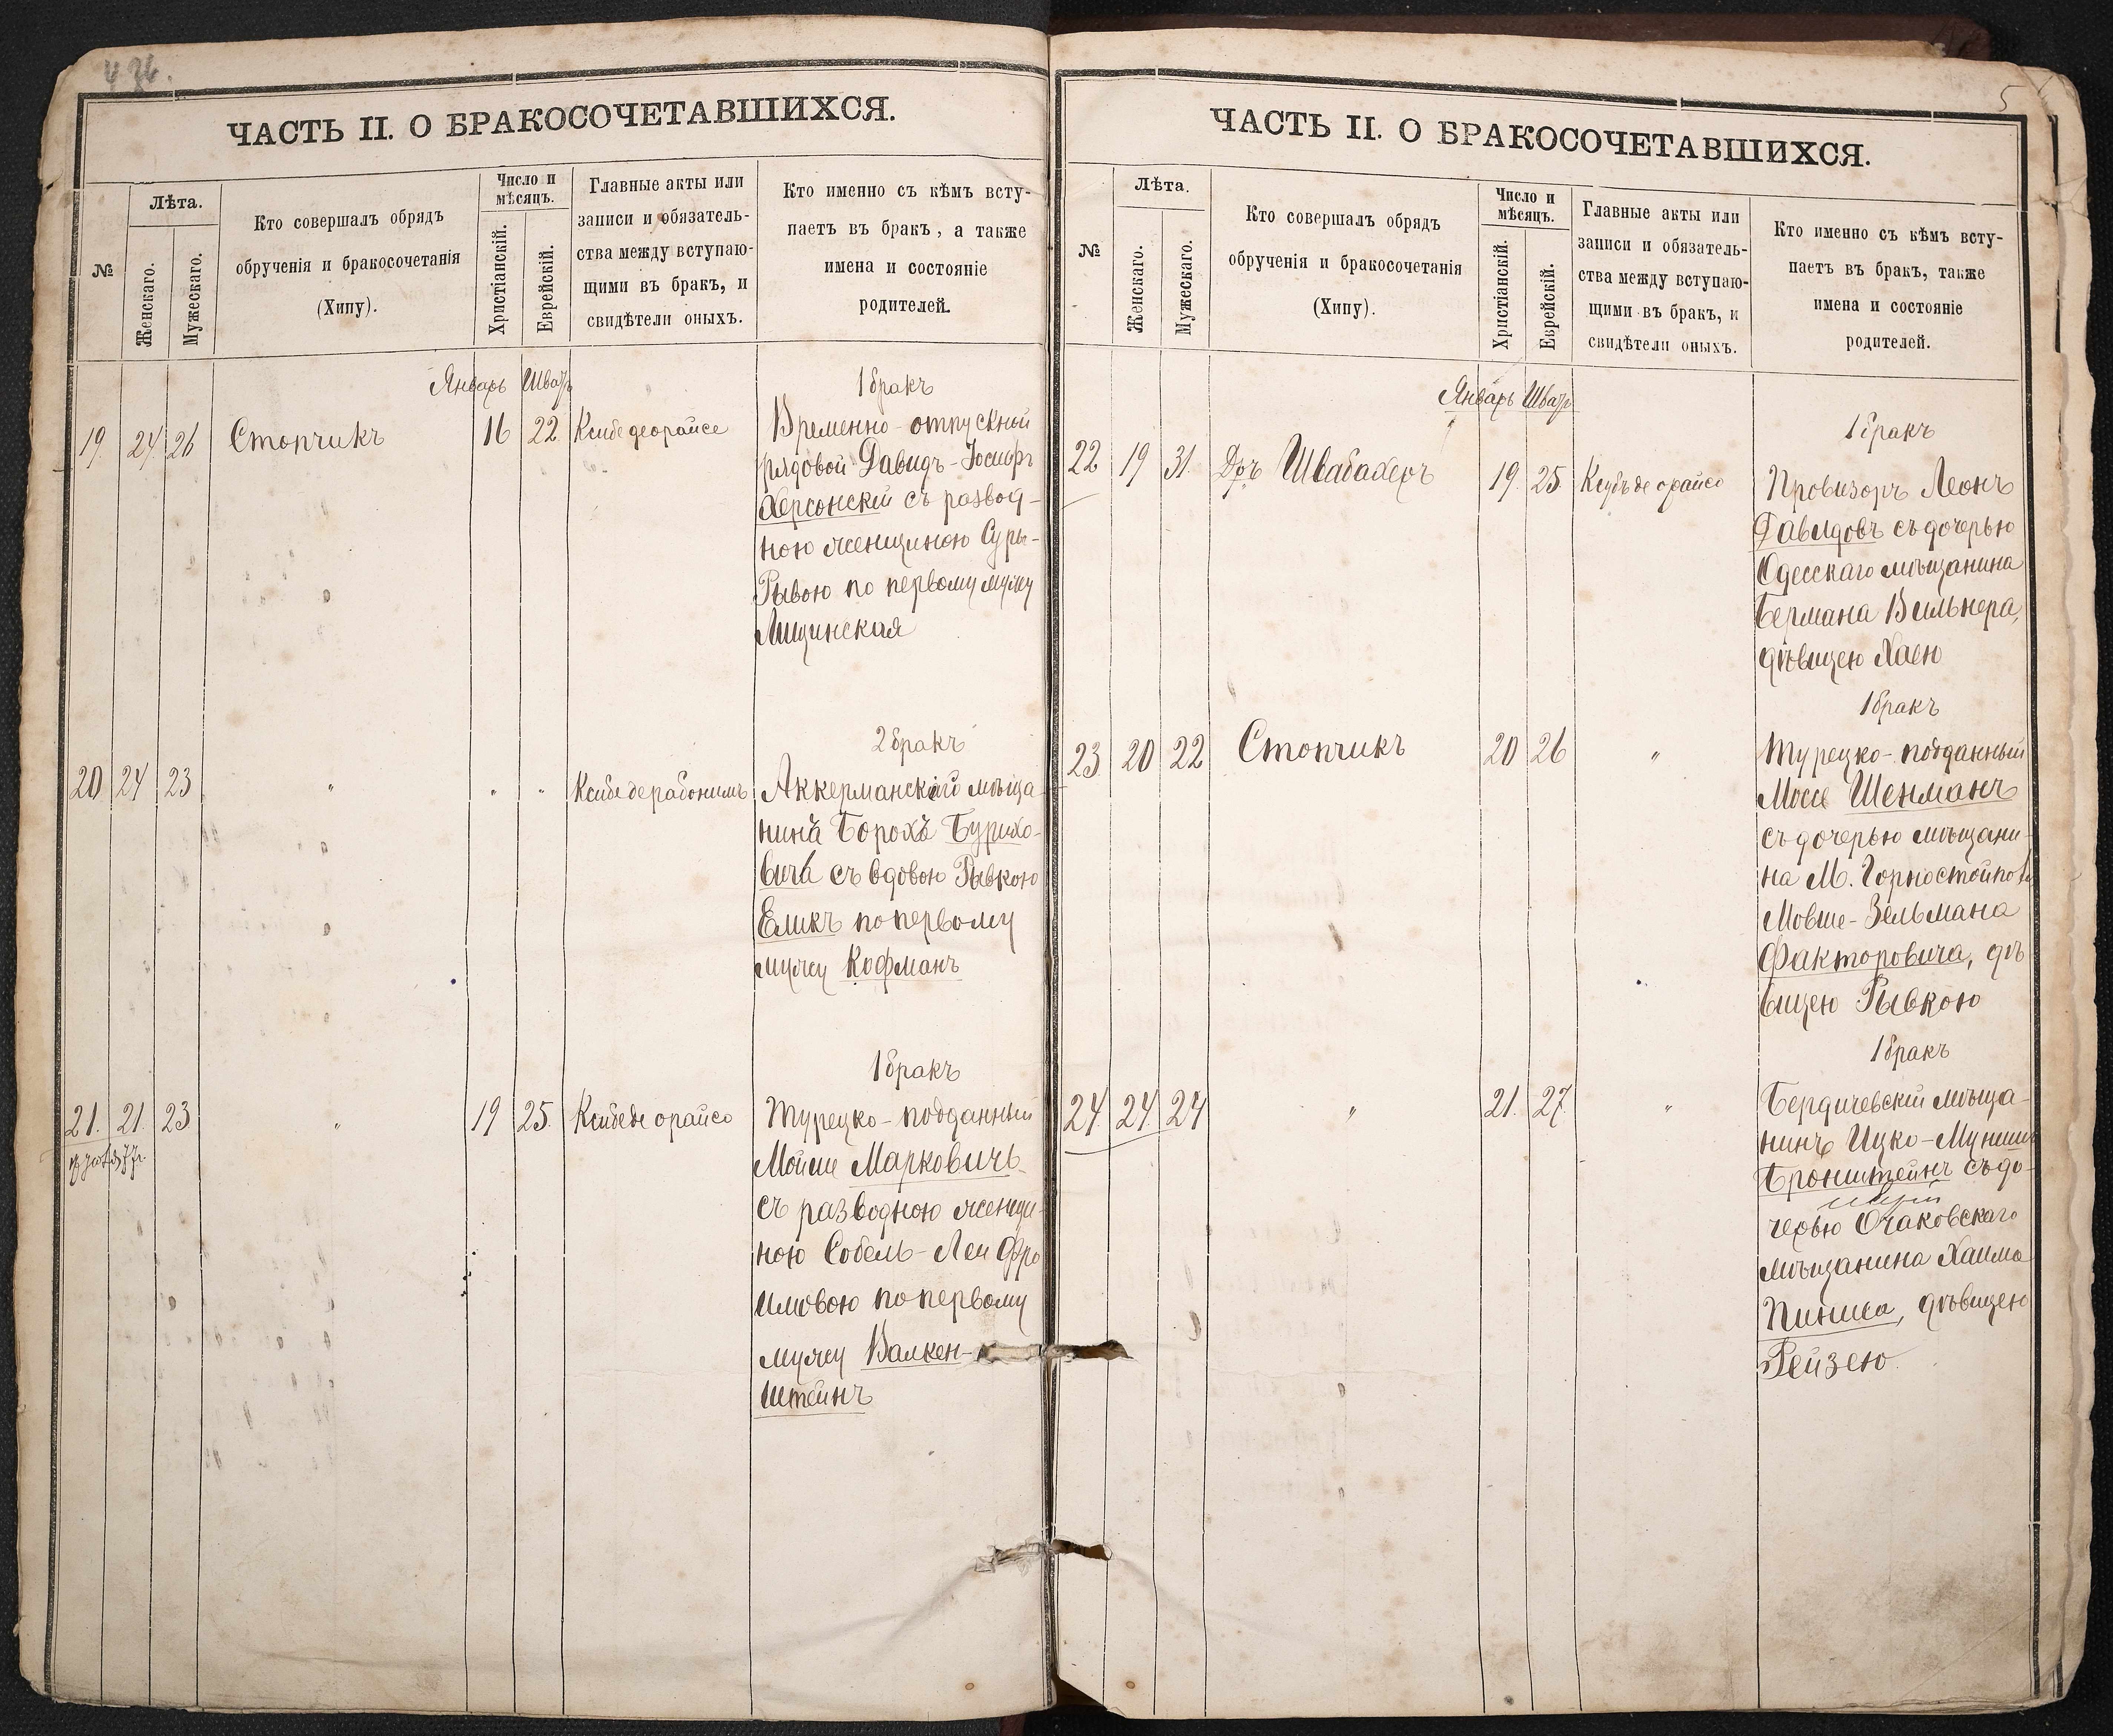 ЧАСТЬ II. О БРАКОСОЧЕТАВШИХСЯ.
№
Лѣта.
Женскаго.
Мужескаго.
Кто совершалъ обрядъ
обрученія и бракосочетанія
(Хипу).
Число и
мѣсяцъ.
Христіанскій.
Еврейскій.
Главные акты или
записи и обязатель-
ства между вступаю-
щими въ бракъ, и
свидѣтели оныхъ.
Кто именно съ кѣмъ всту-
паетъ въ бракъ, а также
имена и состояніе
родителей.
Январь Шватъ
1 бракъ
19. 24 26 Стопчикъ 16 22 Ксибе деорайсе Временно-отпускной
рядовой Давидъ-Іосифъ
Херсонскій съ развод-
ною женщиною Суры-
Рывою по первому мужу
Лищинская
2 бракъ
20 24 23 " " " Ксибе дерабонимъ Аккерманскаго мѣща
нина Борохъ Бурихо-
вича съ вдовою Рывкою
Еликъ по первому
мужу Кофманъ
1 бракъ
21. 21. 23 " 19 25. Ксибе де орайсо Турецко-подданный
Мойше Марковичъ
съ разводною женщи-
ною Собель-Леи Фро
имовою по первому
мужу Валкен-
штейнъ
ЧАСТЬ II. О БРАКОСОЧЕТАВШИХСЯ.
№
Лѣта.
Женскаго.
Мужескаго.
Кто совершалъ обрядъ
обрученія и бракосочетанія
(Хипу).
Число и
мѣсяцъ.
Христіанскій.
Еврейскій.
Главные акты или
записи и обязатель-
ства между вступаю-
щими въ бракъ, и
свидѣтели оныхъ.
Кто именно съ кѣмъ всту-
паетъ въ бракъ, также
имена и состояніе
родителей.
5
Январь Шватъ
1 бракъ
22 19 31. Дръ Швабахеръ 19. 25. Ксубъ де орайсо Провизоръ Леонъ
Давидовъ съ дочерью
Одесскаго мѣщанина
Германа Вильнера,
дѣвицею Хаею
1 бракъ
23. 20 22 Стопчикъ 20 26 " Турецко-подданный
Мосе Шенманъ
съ дочерью мѣщани-
на М. Горностойпол
Мовше-Зельмана
Факторовича, дѣ
вицею Рывкою
1 бракъ
24. 24. 24 " 21. 27. " Бердичевскій мѣща-
нинъ Ицко-Мунишъ
Бронштейнъ съ до-
черью Очаковскаго
мѣщанина Хаима
Пиниса, дѣвицею
Рейзею.